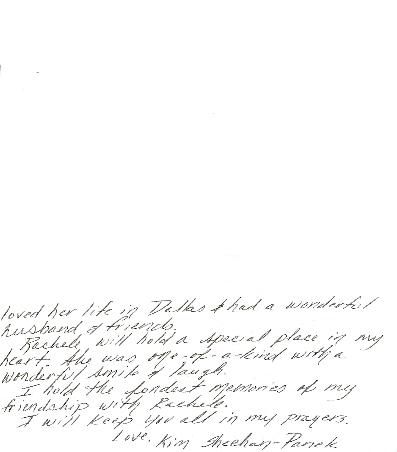 loved her life in Dallas & had a wonderful
husband & friends.
Rachele will hold a special place in my
heart. She was one-of-a-kind with a
wonderful smile & laugh.
I hold the fondest memories of my
friendship with Rachele.
I will keep you all in my prayers.
Love, Kim Sheehan-Panek